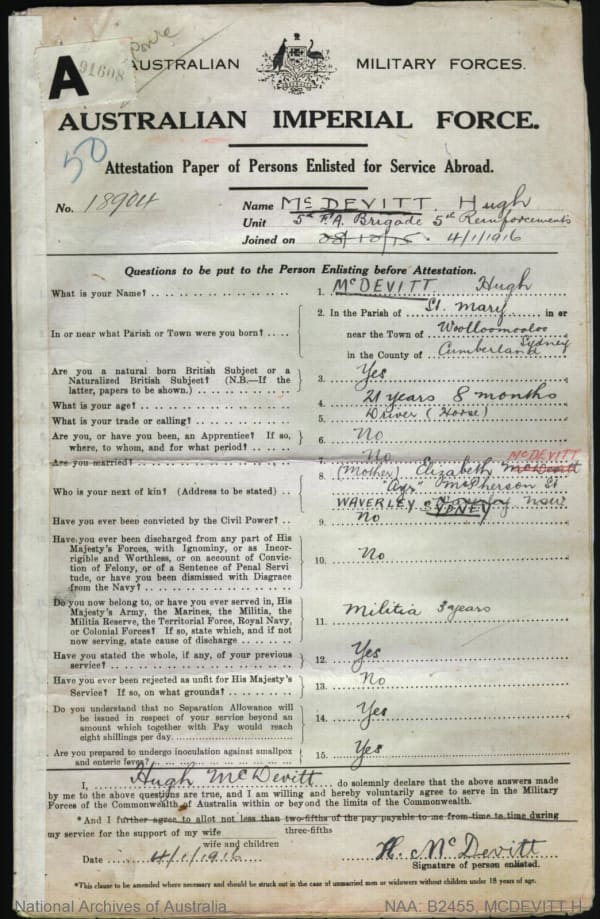 A
91608
AUSTRALIAN MILITARY FORCES.
AUSTRALIAN IMPERIAL FORCE.
50
Attestation Paper of Persons Enlisted for Service Abroad.
No. 18904
Name McDEVITT. Hugh
Unit 5th F.A. Brigade 5th Reinforcements
Joined on 08/10/15. 4/1/1916
Questions to be put to the Person Enlisting before Attestation.
What is your Name? 1. McDEVITT Hugh
In or near what Parish or Town were you born? 2. In the Parish of St. Mary in or
near the Town of Woolloomooloo
in the County of Cumberland Sydney
Are you a natural born British Subject or a
Naturalized British Subject? (N.B.—If the
latter, papers to be shown.) 3. Yes
What is your age? 4. 21 years 8 months
What is your trade or calling? 5. Driver (Horse)
Are you, or have you been, an Apprentice? If so,
where, to whom, and for what period? 6. No
Are you married? 7. No
McDEVITT
Who is your next of kin? (Address to be stated) 8. (Mother) Elizabeth McDevitt
"Ayr" McPherson St
WAVERLEY SYDNEY Waverley NSW
Have you ever been convicted by the Civil Power? 9. No
Have you ever been discharged from any part of His
Majesty's Forces, with Ignominy, or as Incor-
rigible and Worthless, or on account of Convic-
tion of Felony, or of a Sentence of Penal Servi
tude, or have you been dismissed with Disgrace
from the Navy? 10. No
Do you now belong to, or have you ever served in, His
Majesty's Army, the Marines, the Militia, the
Militia Reserve, the Territorial Force, Royal Navy,
or Colonial Forces? If so, state which, and if not
now serving, state cause of discharge 11. Militia 3 years
Have you stated the whole, if any, of your previous
service? 12. Yes
Have you ever been rejected as unfit for His Majesty's
Service? If so, on what grounds? 13. No
Do you understand that no Separation Allowance will
be issued in respect of your service beyond an
amount which together with Pay would reach
eight shillings per day. 14. Yes
Are you prepared to undergo inoculation against smallpox
and enteric fever? 15. Yes
I, Hugh McDevitt do solemnly declare that the above answers made
by me to the above questions are true, and I am willing and hereby voluntarily agree to serve in the Military
Forces of the Commonwealth of Australia within or beyond the limits of the Commonwealth.
*And I further agree to allot not less than two-fifths of the pay payable to me from time to time during
three-fifths
my service for the support of my wife
wife and children
Date 4/1/1916 H. McDevitt
Signature of person enlisted.
*This clause to be amended where necessary and should be struck out in the case of unmarried men or widowers without children under 18 years of age.
National Archives of Australia NAA: B2455, MCDEVITT H